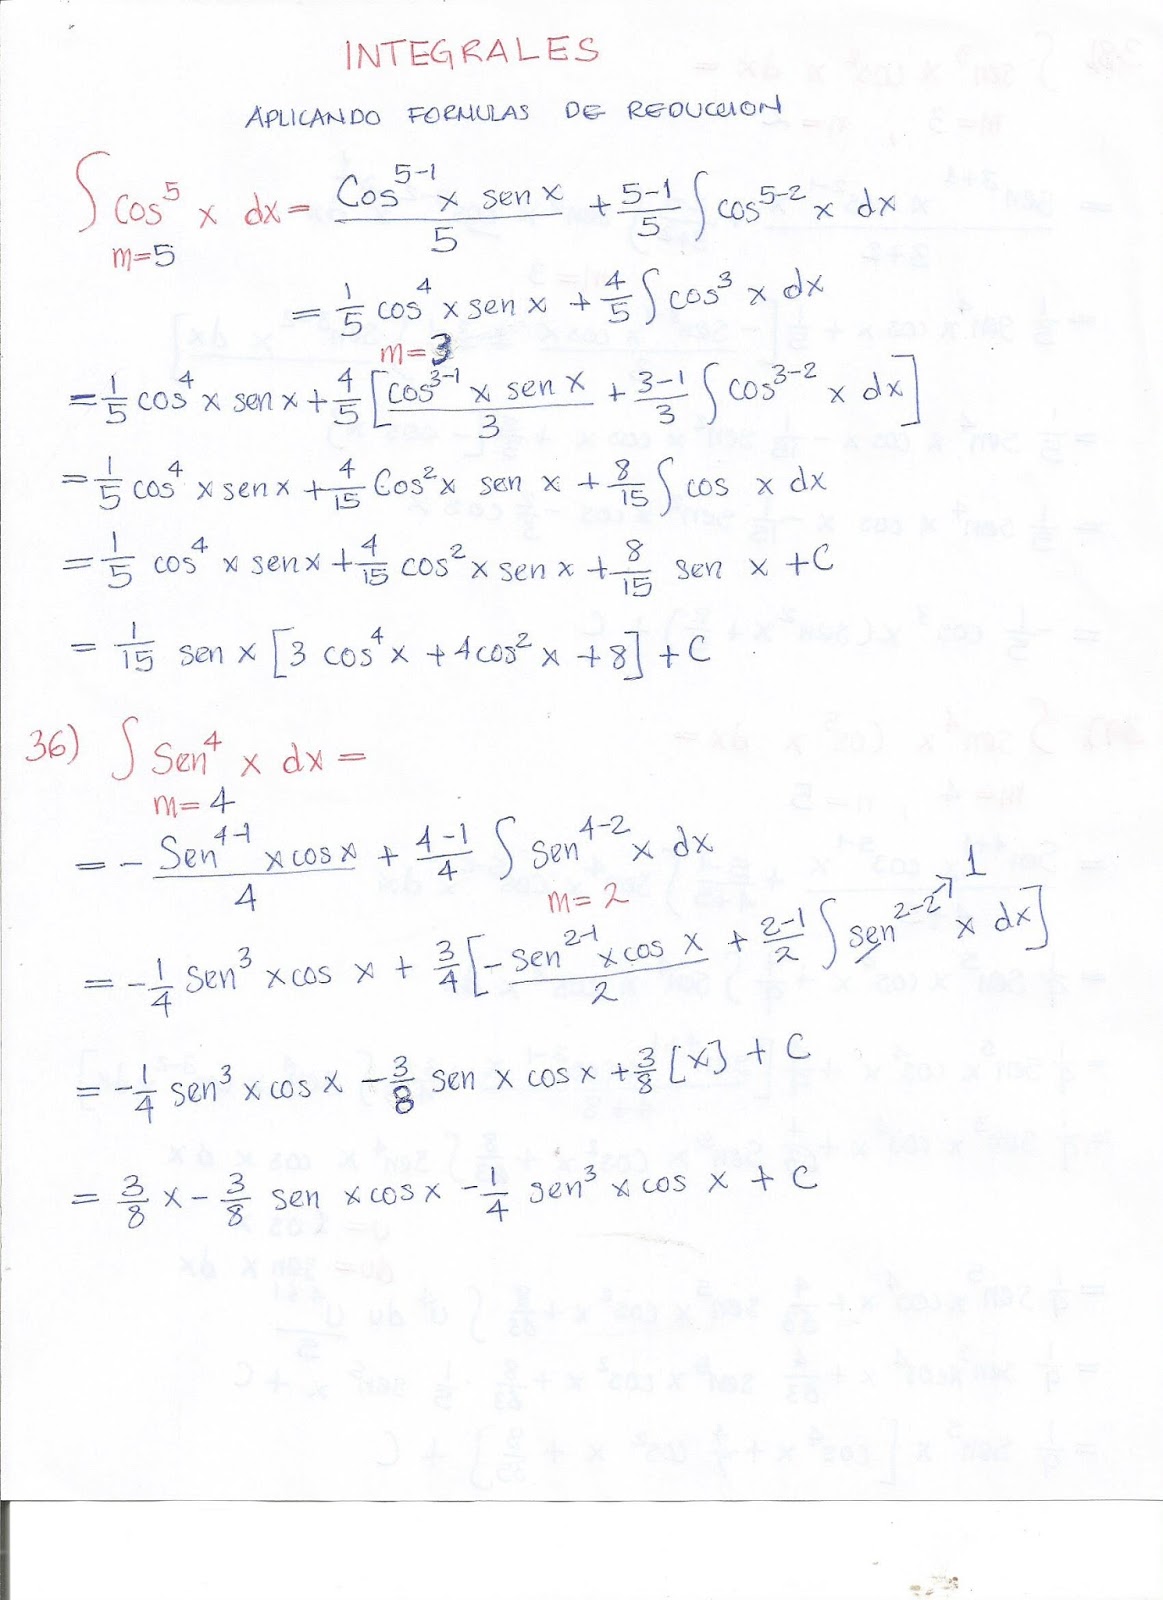 INTEGRALES
APLICANDO FORMULAS DE REDUCCION
∫ Cos⁵ x dx = Cos⁵⁻¹ x sen x / 5 + 5-1/5 ∫ cos⁵⁻² x dx
m=5
= 1/5 cos⁴ x sen x + 4/5 ∫ cos³ x dx
m=3
= 1/5 cos⁴ x sen x + 4/5 [cos³⁻¹ x sen x / 3 + 3-1/3 ∫ cos³⁻² x dx]
= 1/5 cos⁴ x sen x + 4/15 Cos² x sen x + 8/15 ∫ cos x dx
= 1/5 cos⁴ x sen x + 4/15 cos² x sen x + 8/15 sen x + C
= 1/15 sen x [3 cos⁴ x + 4cos² x + 8] + C
36) ∫ Sen⁴ x dx =
m=4
= - Sen⁴⁻¹ x cos x / 4 + 4-1/4 ∫ sen⁴⁻² x dx
m=2
1
= -1/4 sen³ x cos x + 3/4 [- sen²⁻¹ x cos x / 2 + 2-1/2 ∫ sen²⁻² x dx]
= -1/4 sen³ x cos x - 3/8 sen x cos x + 3/8 [x] + C
= 3/8 x - 3/8 sen x cos x - 1/4 sen³ x cos x + C